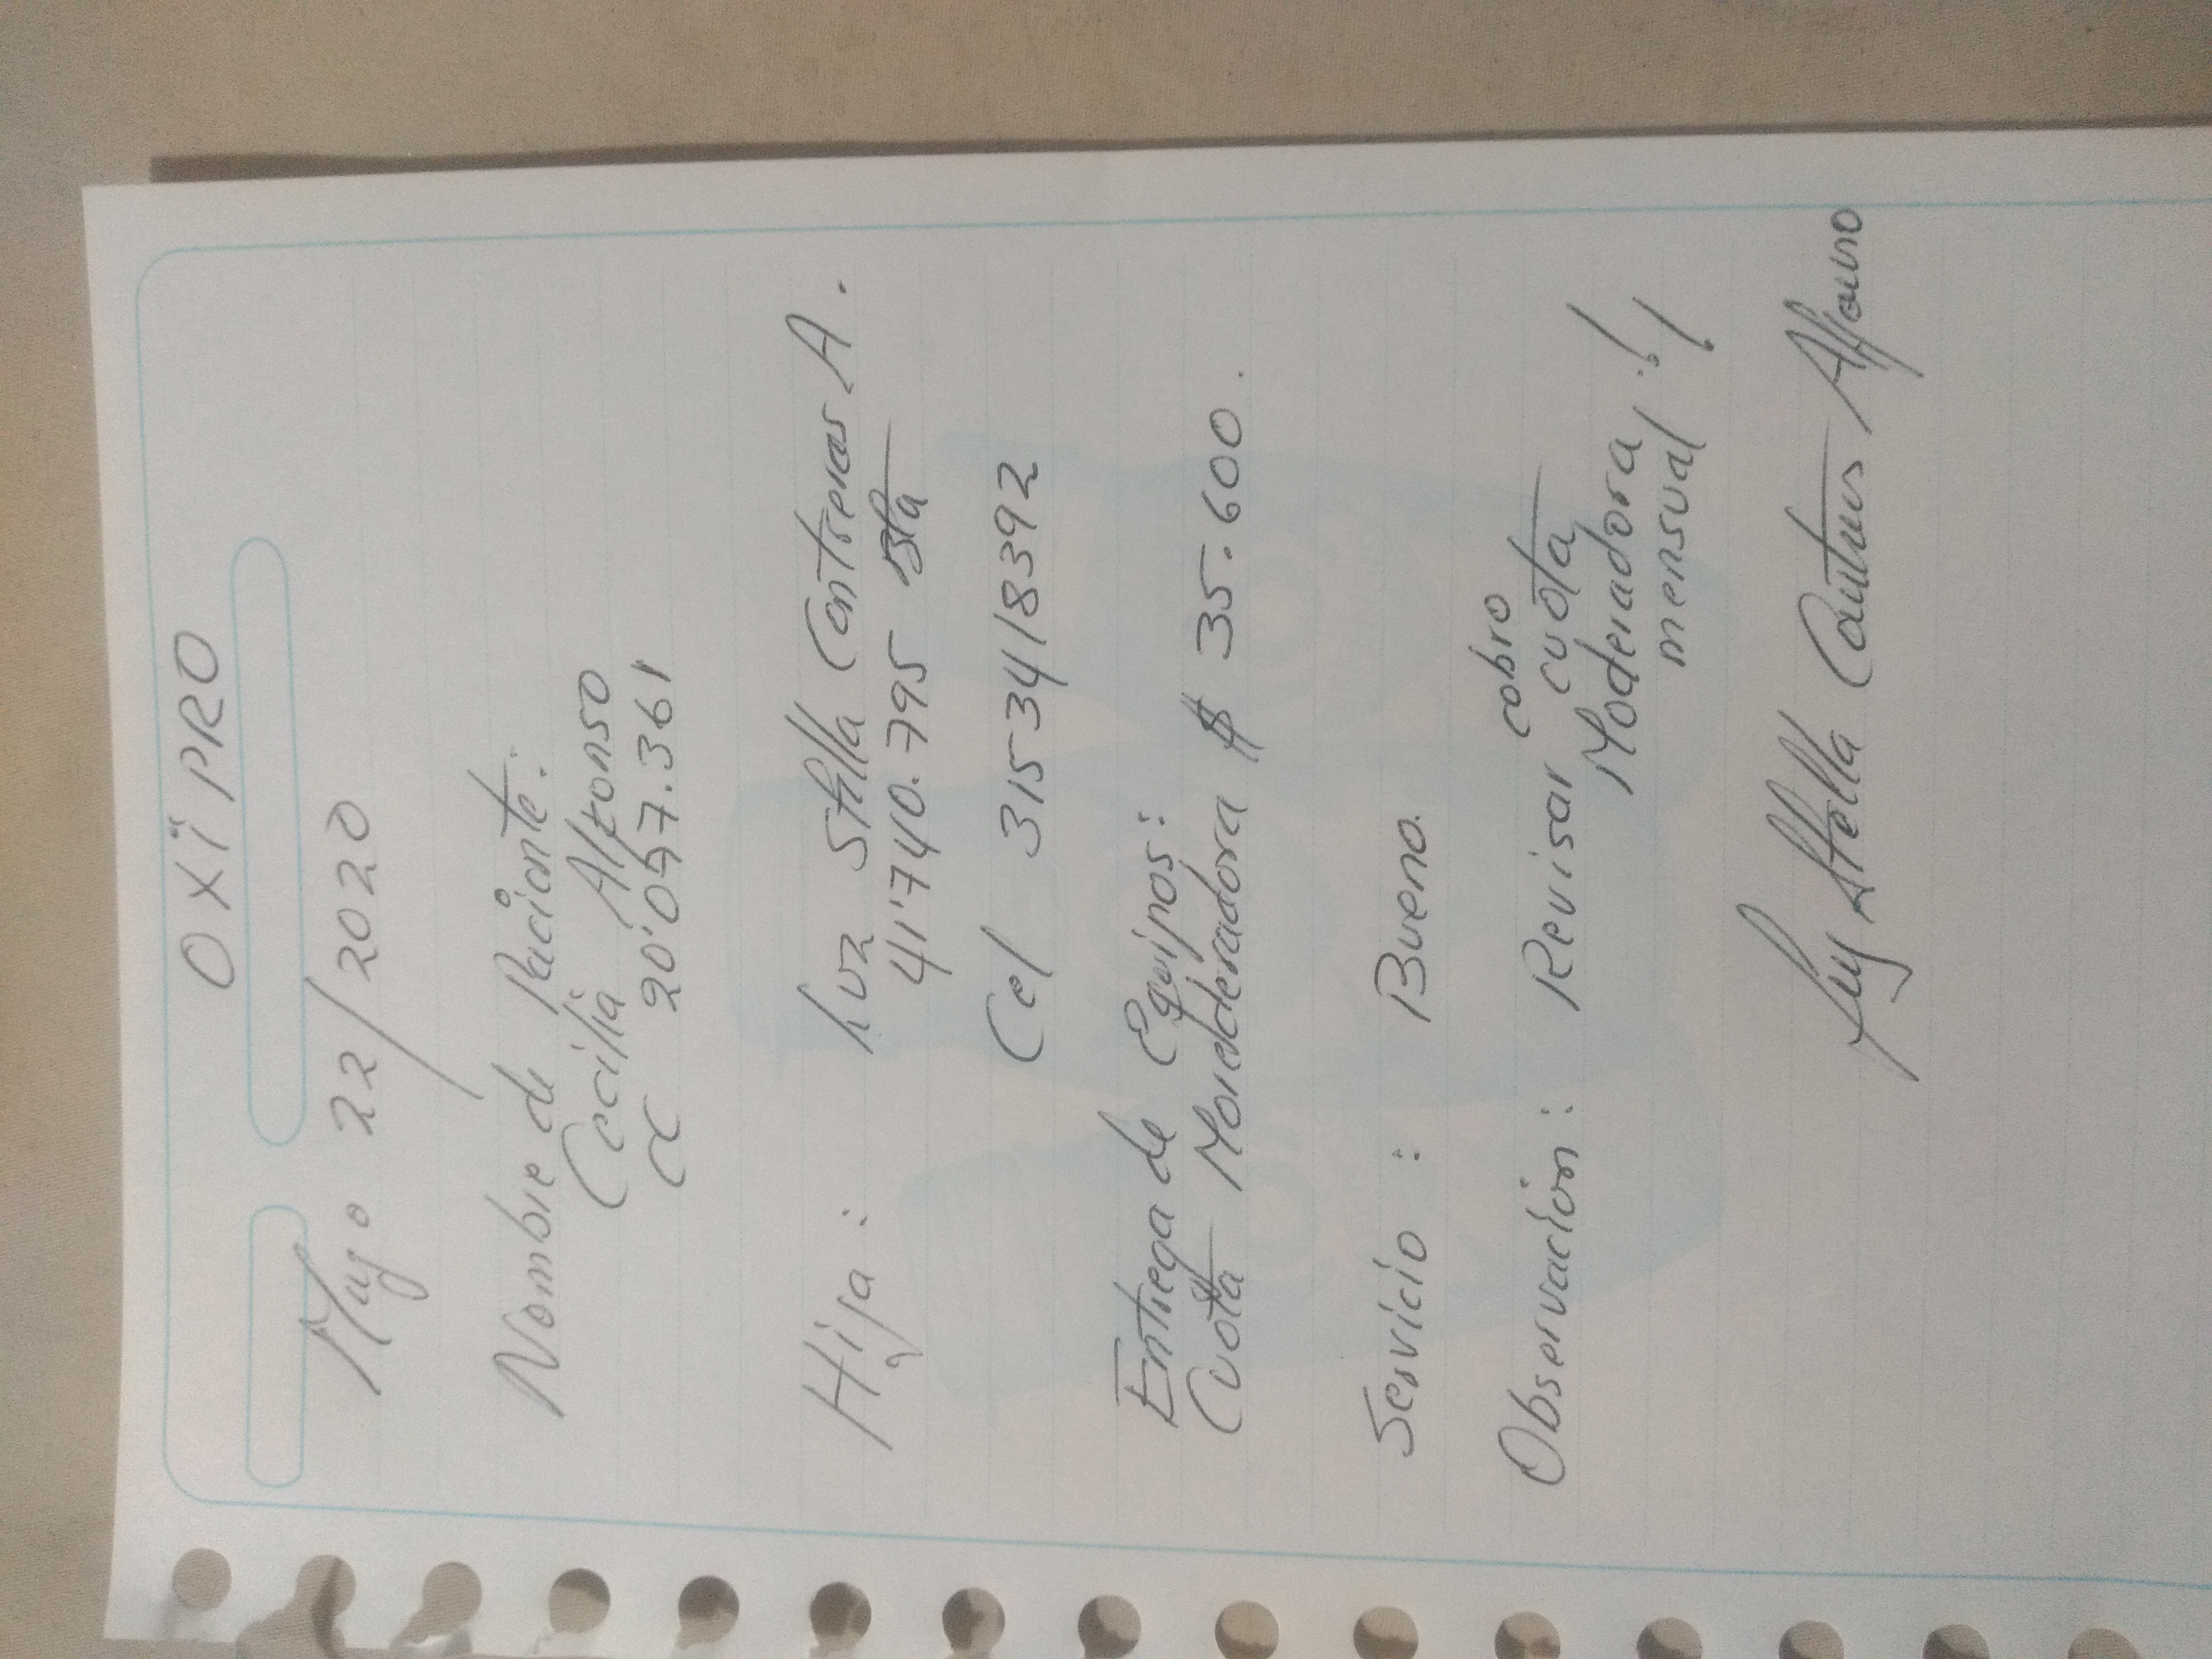 OXÏPRO
Mayo 22/2020
Nombre de Paciente:
Cecilia Alfonso
CC 20'047.361
Hija: Luz Stella Contreras A.
41'740.795 Bta
Cel 3153418392
Entrega de Equipos:
Cuota Moraderadora $ 35.600.
Servicio: Bueno.
Observación: Revisar cobro
cuota
Moderadora
mensual !!
Luz Stella Contreras Alfonso